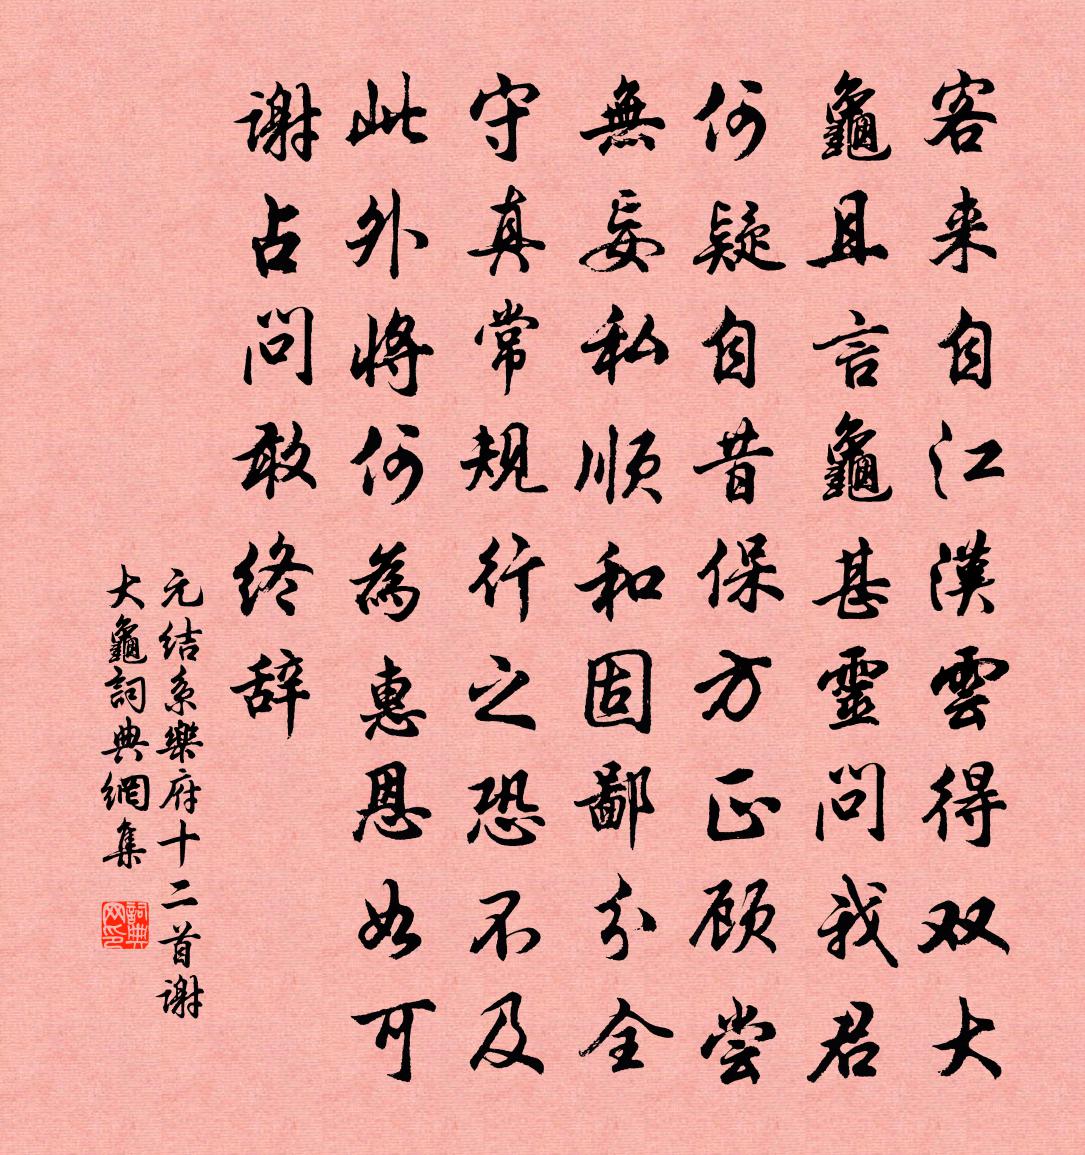 客来自江漢雲得双大
龜且言龜甚靈問我君
何疑自昔保方正顾尝
無妄私順和固鄙分全
守真常規行之恐不及
此外将何為惠恩如可
謝占問敢终辞
元结系樂府十二首謝
大龜詞典網集
詞典网印